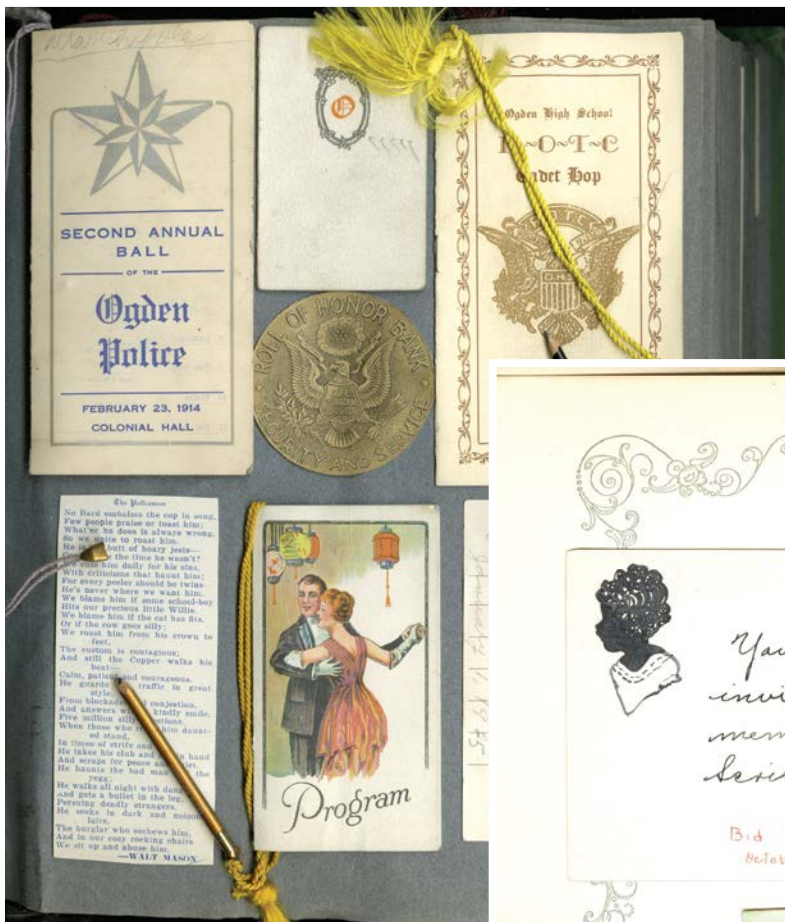 SECOND ANNUAL
BALL
OF THE
Ogden
Police
FEBRUARY 23, 1914
COLONIAL HALL
O
Ogden High School
Cadet Hop
ROLL OF HONOR BANK
SECURITY AND SERVICE
The Policeman
No Bard embalms the cop in song,
Few people praise or toast him;
What'er he does is always wrong,
So we unite to roast him.
He is butt of hoary jests—
the time he wasn't?
him daily for his sins,
With criticisms that haunt him;
For every peeler should be twins
He's never where we want him.
We blame him if some school-boy
Hits our precious little Willie.
We blame him if the cat has fits,
Or if the cow goes silly;
We roast him from his crown to
feet,
The custom is contagious;
And still the Copper walks his
beat—
Calm, patient and courageous.
He guards traffic in great
style,
From blockade and conjestion,
And answers kindly smile,
Five million silly questions.
When those who him daunt-
ed stand,
In times of strife and
He takes his club and in hand
And scraps for peace and
He haunts the bad man the
yegg;
He walks all night with
And gets a bullet in the leg,
Persuing deadly strangers.
He seeks in dark and
lairs,
The burglar who eschews him,
And in our cosy rocking chairs
We sit up and abuse him.
—WALT MASON
Program
You
invi
mem
Bid